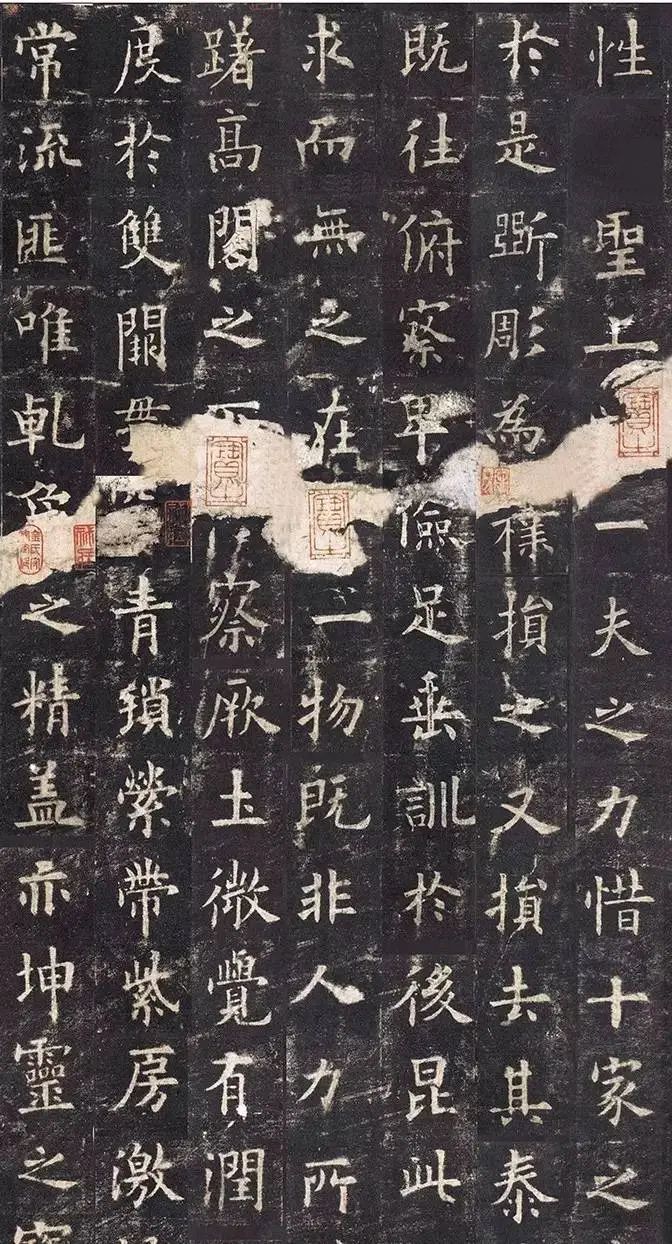 性聖上一夫之力惜十家之
於是斲彫為樸損之又損去其泰
既往俯察卑儉足垂訓於後昆此
求而無之在一物既非人力所
躇高閣之察厥土微覺有潤
度於雙闕青瑣縈帶紫房激
常流匪唯乹象之精盖亦坤靈之